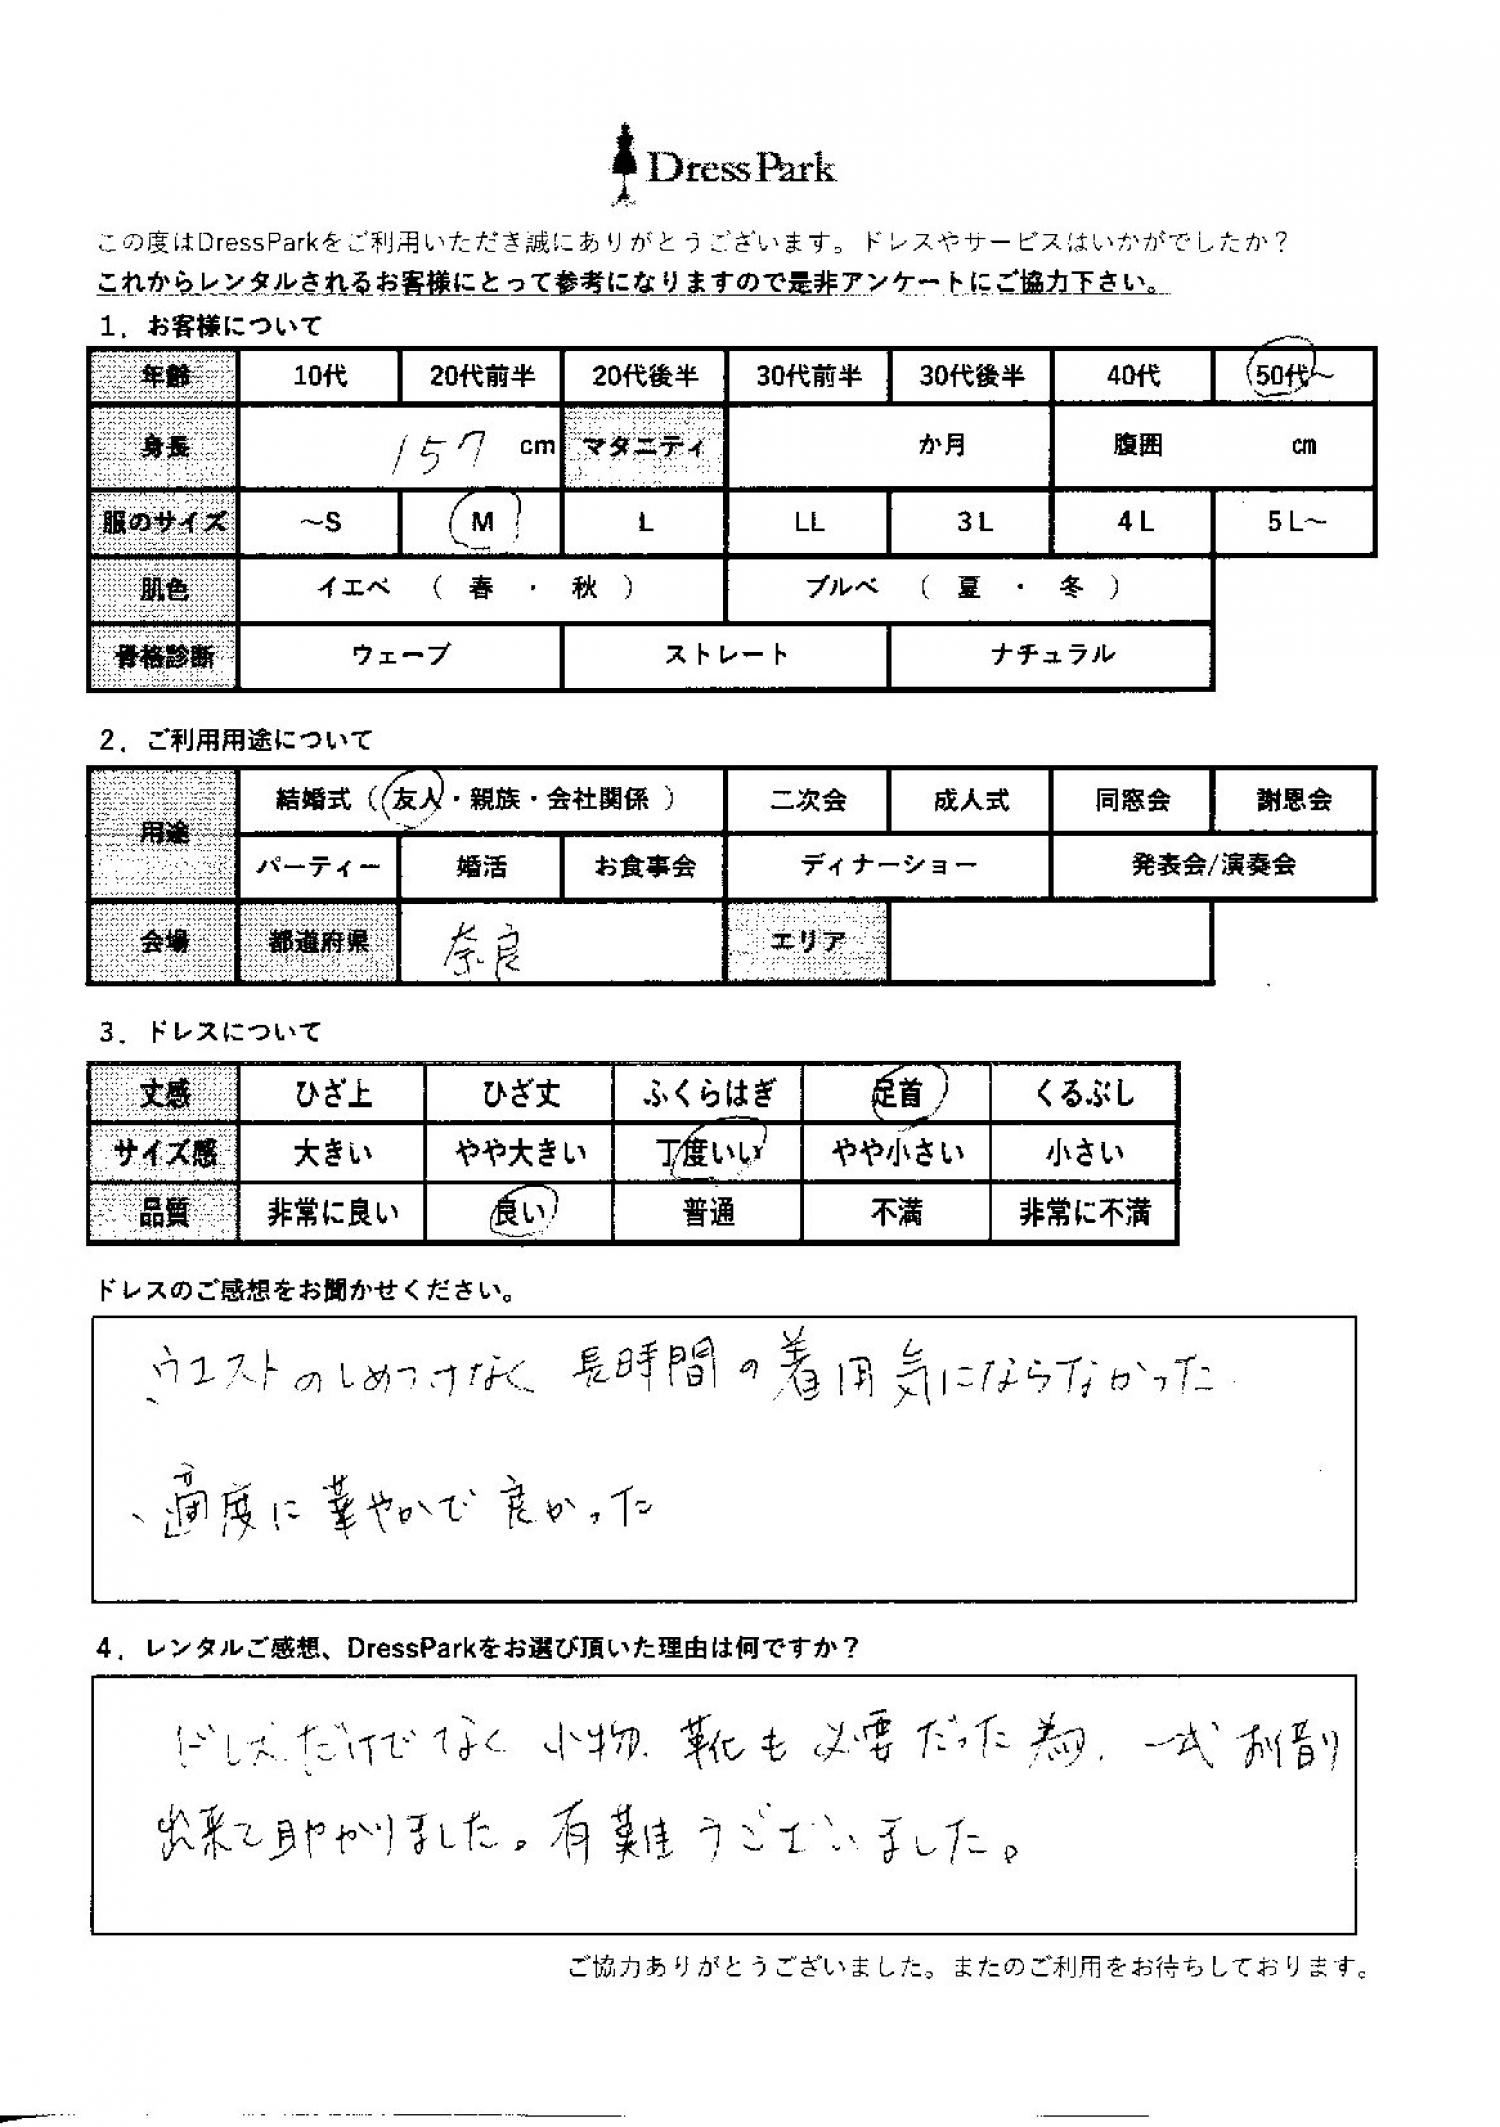 DressPark
この度はDressParkをご利用いただき誠にありがとうございます。ドレスやサービスはいかがでしたか？
これからレンタルされるお客様にとって参考になりますので是非アンケートにご協力下さい。
1．お客様について
年齢 10代 20代前半 20代後半 30代前半 30代後半 40代 50代～
身長 157 cm マタニティ か月 腹囲 cm
服のサイズ ～S M L LL 3L 4L 5L～
肌色 イエベ （ 春 ・ 秋 ） ブルベ （ 夏 ・ 冬 ）
骨格診断 ウェーブ ストレート ナチュラル
2．ご利用用途について
用途 結婚式（友人・親族・会社関係） 二次会 成人式 同窓会 謝恩会
パーティー 婚活 お食事会 ディナーショー 発表会/演奏会
会場 都道府県 奈良 エリア
3．ドレスについて
丈感 ひざ上 ひざ丈 ふくらはぎ 足首 くるぶし
サイズ感 大きい やや大きい 丁度いい やや小さい 小さい
品質 非常に良い 良い 普通 不満 非常に不満
ドレスのご感想をお聞かせください。
、ウエストのしめつけなく 長時間の着用気にならなかった
、適度に華やかで良かった
4．レンタルご感想、DressParkをお選び頂いた理由は何ですか？
ドレスだけでなく 小物、靴も必要だった為、一式お借り
出来て助かりました。有難うございました。
ご協力ありがとうございました。またのご利用をお待ちしております。